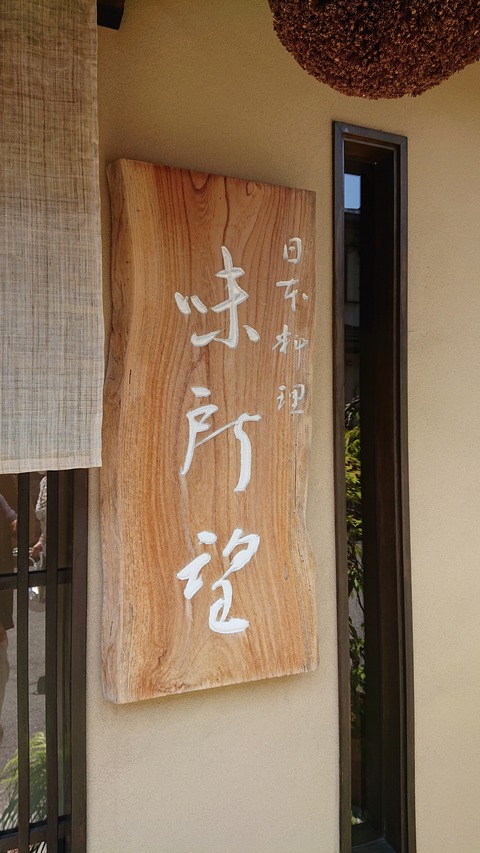 日本料理
味所望